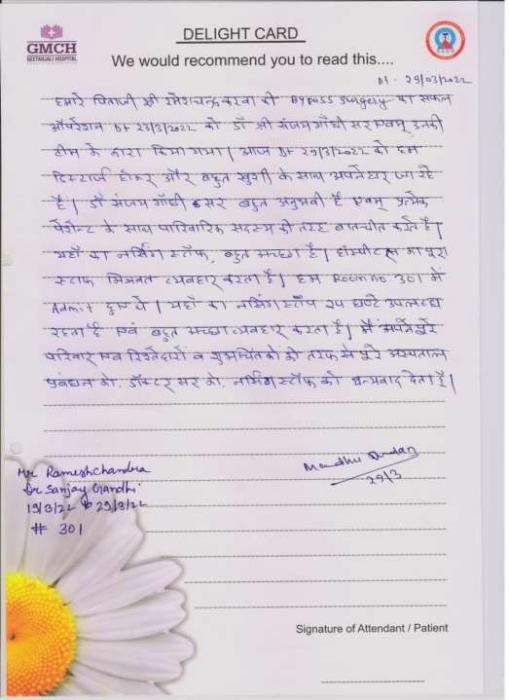 GMCH
GEETANJALI HOSPITAL
DELIGHT CARD
We would recommend you to read this....
Dt. 29/03/2022
हमारे पिताजी श्री रमेशचन्द्र करवा की Bypass surgery का सफल
ऑपरेशन Dt 23/3/2022 को डॉ श्री संजय गाँधी सर एवम् उनकी
टीम के द्वारा किया गया। आज Dt 29/3/2022 को हम
डिस्चार्ज होकर और बहुत खुशी के साथ अपने घर जा रहे
है। डॉ संजय गाँधी सर बहुत अनुभवी है एवम् प्रत्येक
पेशेन्ट के साथ पारिवारिक सदस्य की तरह बातचीत करते है।
यहाँ का नर्सिंग स्टॉफ, बहुत अच्छा है। हॉस्पीटल का पूरा
स्टाफ मित्रवत व्यवहार करता है। हम Room no. 301 में
Admit हुए थे। यहाँ का नर्सिंग स्टॉफ २४ घण्टे उपलब्ध
रहता है एवं बहुत अच्छा व्यवहार करता है। मैं अपने पूरे
परिवार एवं रिश्तेदारों व शुभचिंतकों की तरफ से पूरे अस्पताल
प्रबंधन को, डॉक्टर सर को, नर्सिंग स्टॉफ को धन्यवाद देता है।
Mr Rameshchandra
Dr Sanjay Gandhi
19/3/22 to 29/3/22
# 301
29/3
Signature of Attendant / Patient